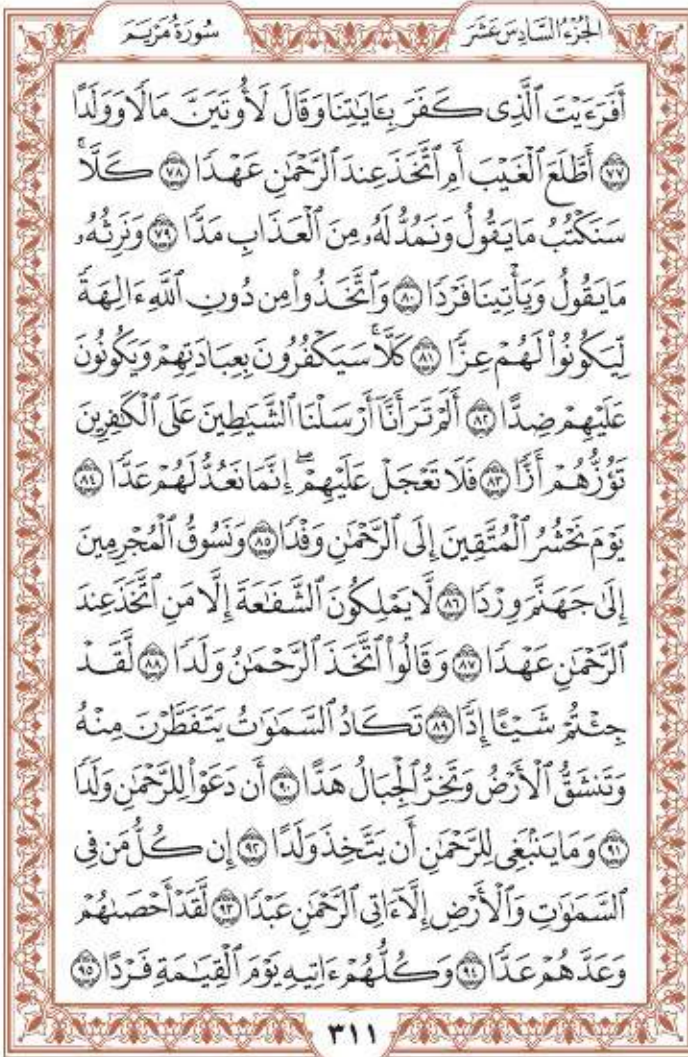 الجُزْءُ السَّادِسَ عَشَرَ
سُورَةُ مَرْيَمَ
أَفَرَءَيْتَ ٱلَّذِى كَفَرَ بِـَٔايَـٰتِنَا وَقَالَ لَأُوتَيَنَّ مَالًا وَوَلَدًا
٧٧ أَطَّلَعَ ٱلْغَيْبَ أَمِ ٱتَّخَذَ عِندَ ٱلرَّحْمَـٰنِ عَهْدًا ٧٨ كَلَّا ۚ
سَنَكْتُبُ مَا يَقُولُ وَنَمُدُّ لَهُۥ مِنَ ٱلْعَذَابِ مَدًّا ٧٩ وَنَرِثُهُۥ
مَا يَقُولُ وَيَأْتِينَا فَرْدًا ٨٠ وَٱتَّخَذُوا۟ مِن دُونِ ٱللَّهِ ءَالِهَةً
لِّيَكُونُوا۟ لَهُمْ عِزًّا ٨١ كَلَّا ۚ سَيَكْفُرُونَ بِعِبَادَتِهِمْ وَيَكُونُونَ
عَلَيْهِمْ ضِدًّا ٨٢ أَلَمْ تَرَ أَنَّآ أَرْسَلْنَا ٱلشَّيَـٰطِينَ عَلَى ٱلْكَـٰفِرِينَ
تَؤُزُّهُمْ أَزًّا ٨٣ فَلَا تَعْجَلْ عَلَيْهِمْ ۖ إِنَّمَا نَعُدُّ لَهُمْ عَدًّا ٨٤
يَوْمَ نَحْشُرُ ٱلْمُتَّقِينَ إِلَى ٱلرَّحْمَـٰنِ وَفْدًا ٨٥ وَنَسُوقُ ٱلْمُجْرِمِينَ
إِلَىٰ جَهَنَّمَ وِرْدًا ٨٦ لَّا يَمْلِكُونَ ٱلشَّفَـٰعَةَ إِلَّا مَنِ ٱتَّخَذَ عِندَ
ٱلرَّحْمَـٰنِ عَهْدًا ٨٧ وَقَالُوا۟ ٱتَّخَذَ ٱلرَّحْمَـٰنُ وَلَدًا ٨٨ لَّقَدْ
جِئْتُمْ شَيْـًٔا إِدًّا ٨٩ تَكَادُ ٱلسَّمَـٰوَٰتُ يَتَفَطَّرْنَ مِنْهُ
وَتَنشَقُّ ٱلْأَرْضُ وَتَخِرُّ ٱلْجِبَالُ هَدًّا ٩٠ أَن دَعَوْا۟ لِلرَّحْمَـٰنِ وَلَدًا
٩١ وَمَا يَنۢبَغِى لِلرَّحْمَـٰنِ أَن يَتَّخِذَ وَلَدًا ٩٢ إِن كُلُّ مَن فِى
ٱلسَّمَـٰوَٰتِ وَٱلْأَرْضِ إِلَّآ ءَاتِى ٱلرَّحْمَـٰنِ عَبْدًا ٩٣ لَّقَدْ أَحْصَىٰهُمْ
وَعَدَّهُمْ عَدًّا ٩٤ وَكُلُّهُمْ ءَاتِيهِ يَوْمَ ٱلْقِيَـٰمَةِ فَرْدًا ٩٥
٣١١